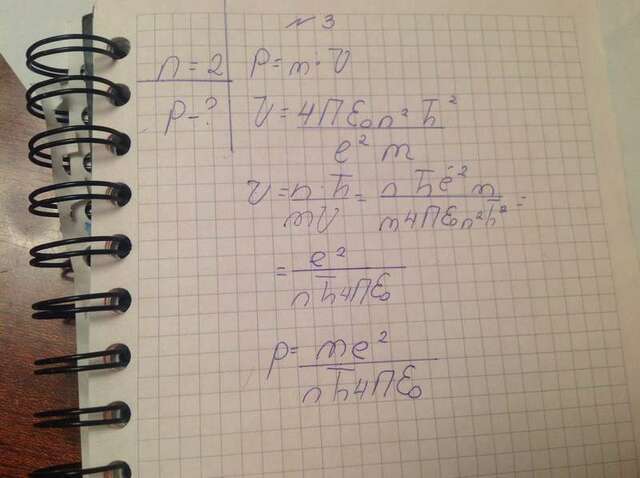 № 3
n = 2 p = m · V
p - ? r = 4πε₀n²ħ² / e² m
V = n · ħ / mr = n ħ e² m / m 4πε₀n²ħ² =
= e² / n ħ 4πε₀
p = me² / n ħ 4πε₀